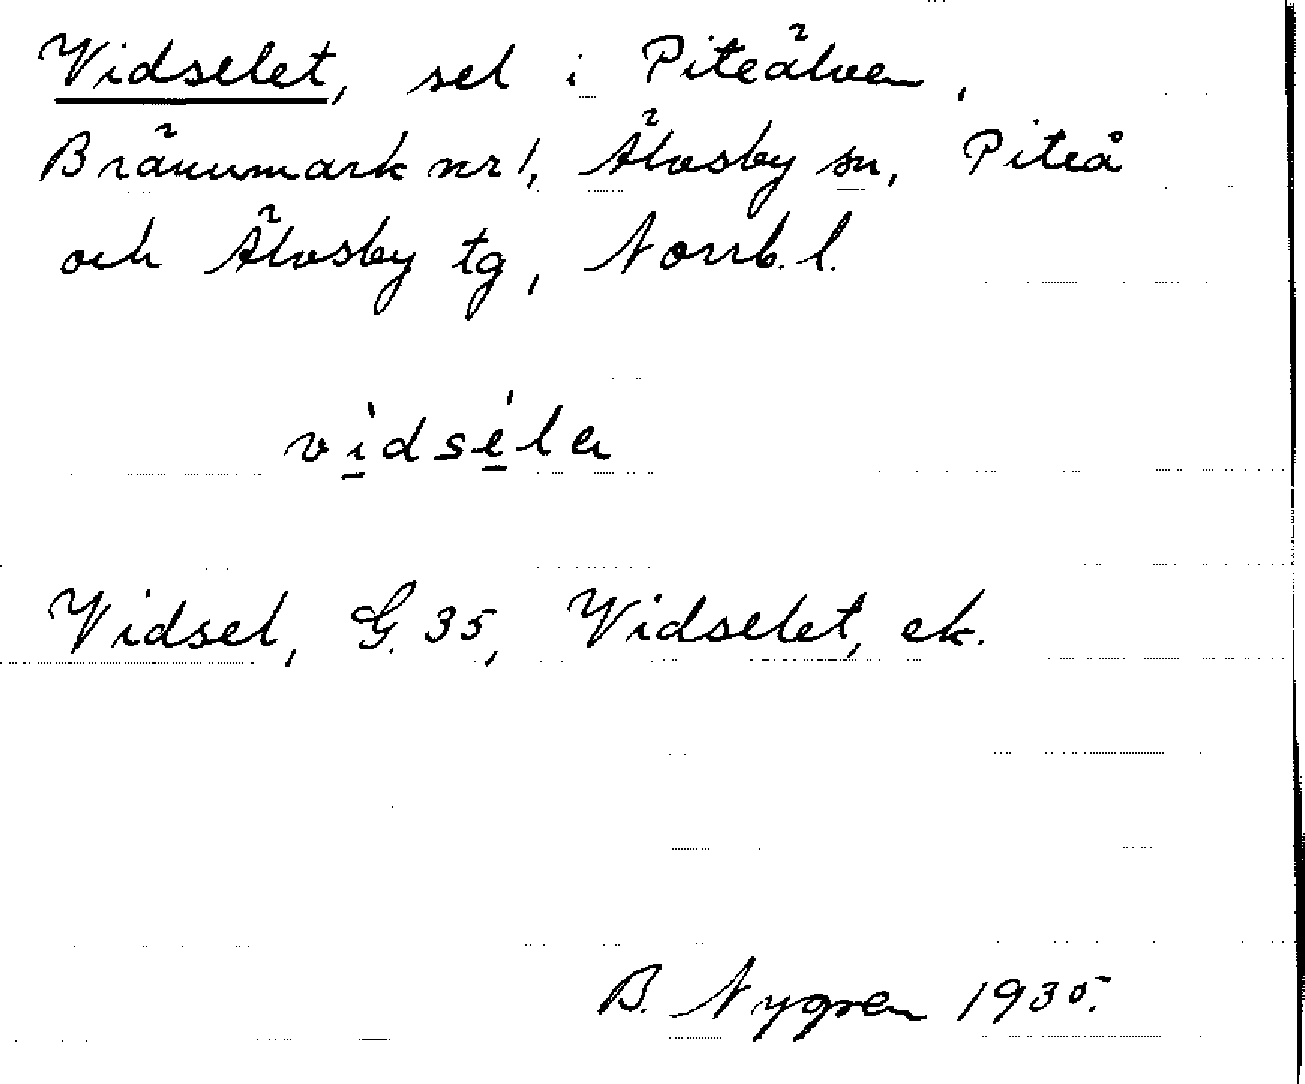 Vidselet, sel i Piteälven,
Brännmark nr 1, Älvsby sn, Piteå
och Älvsby tg, Norrb. l.
vidselα
Vidsel, G. 35, Vidselet, ek.
B. Nygren 1935.